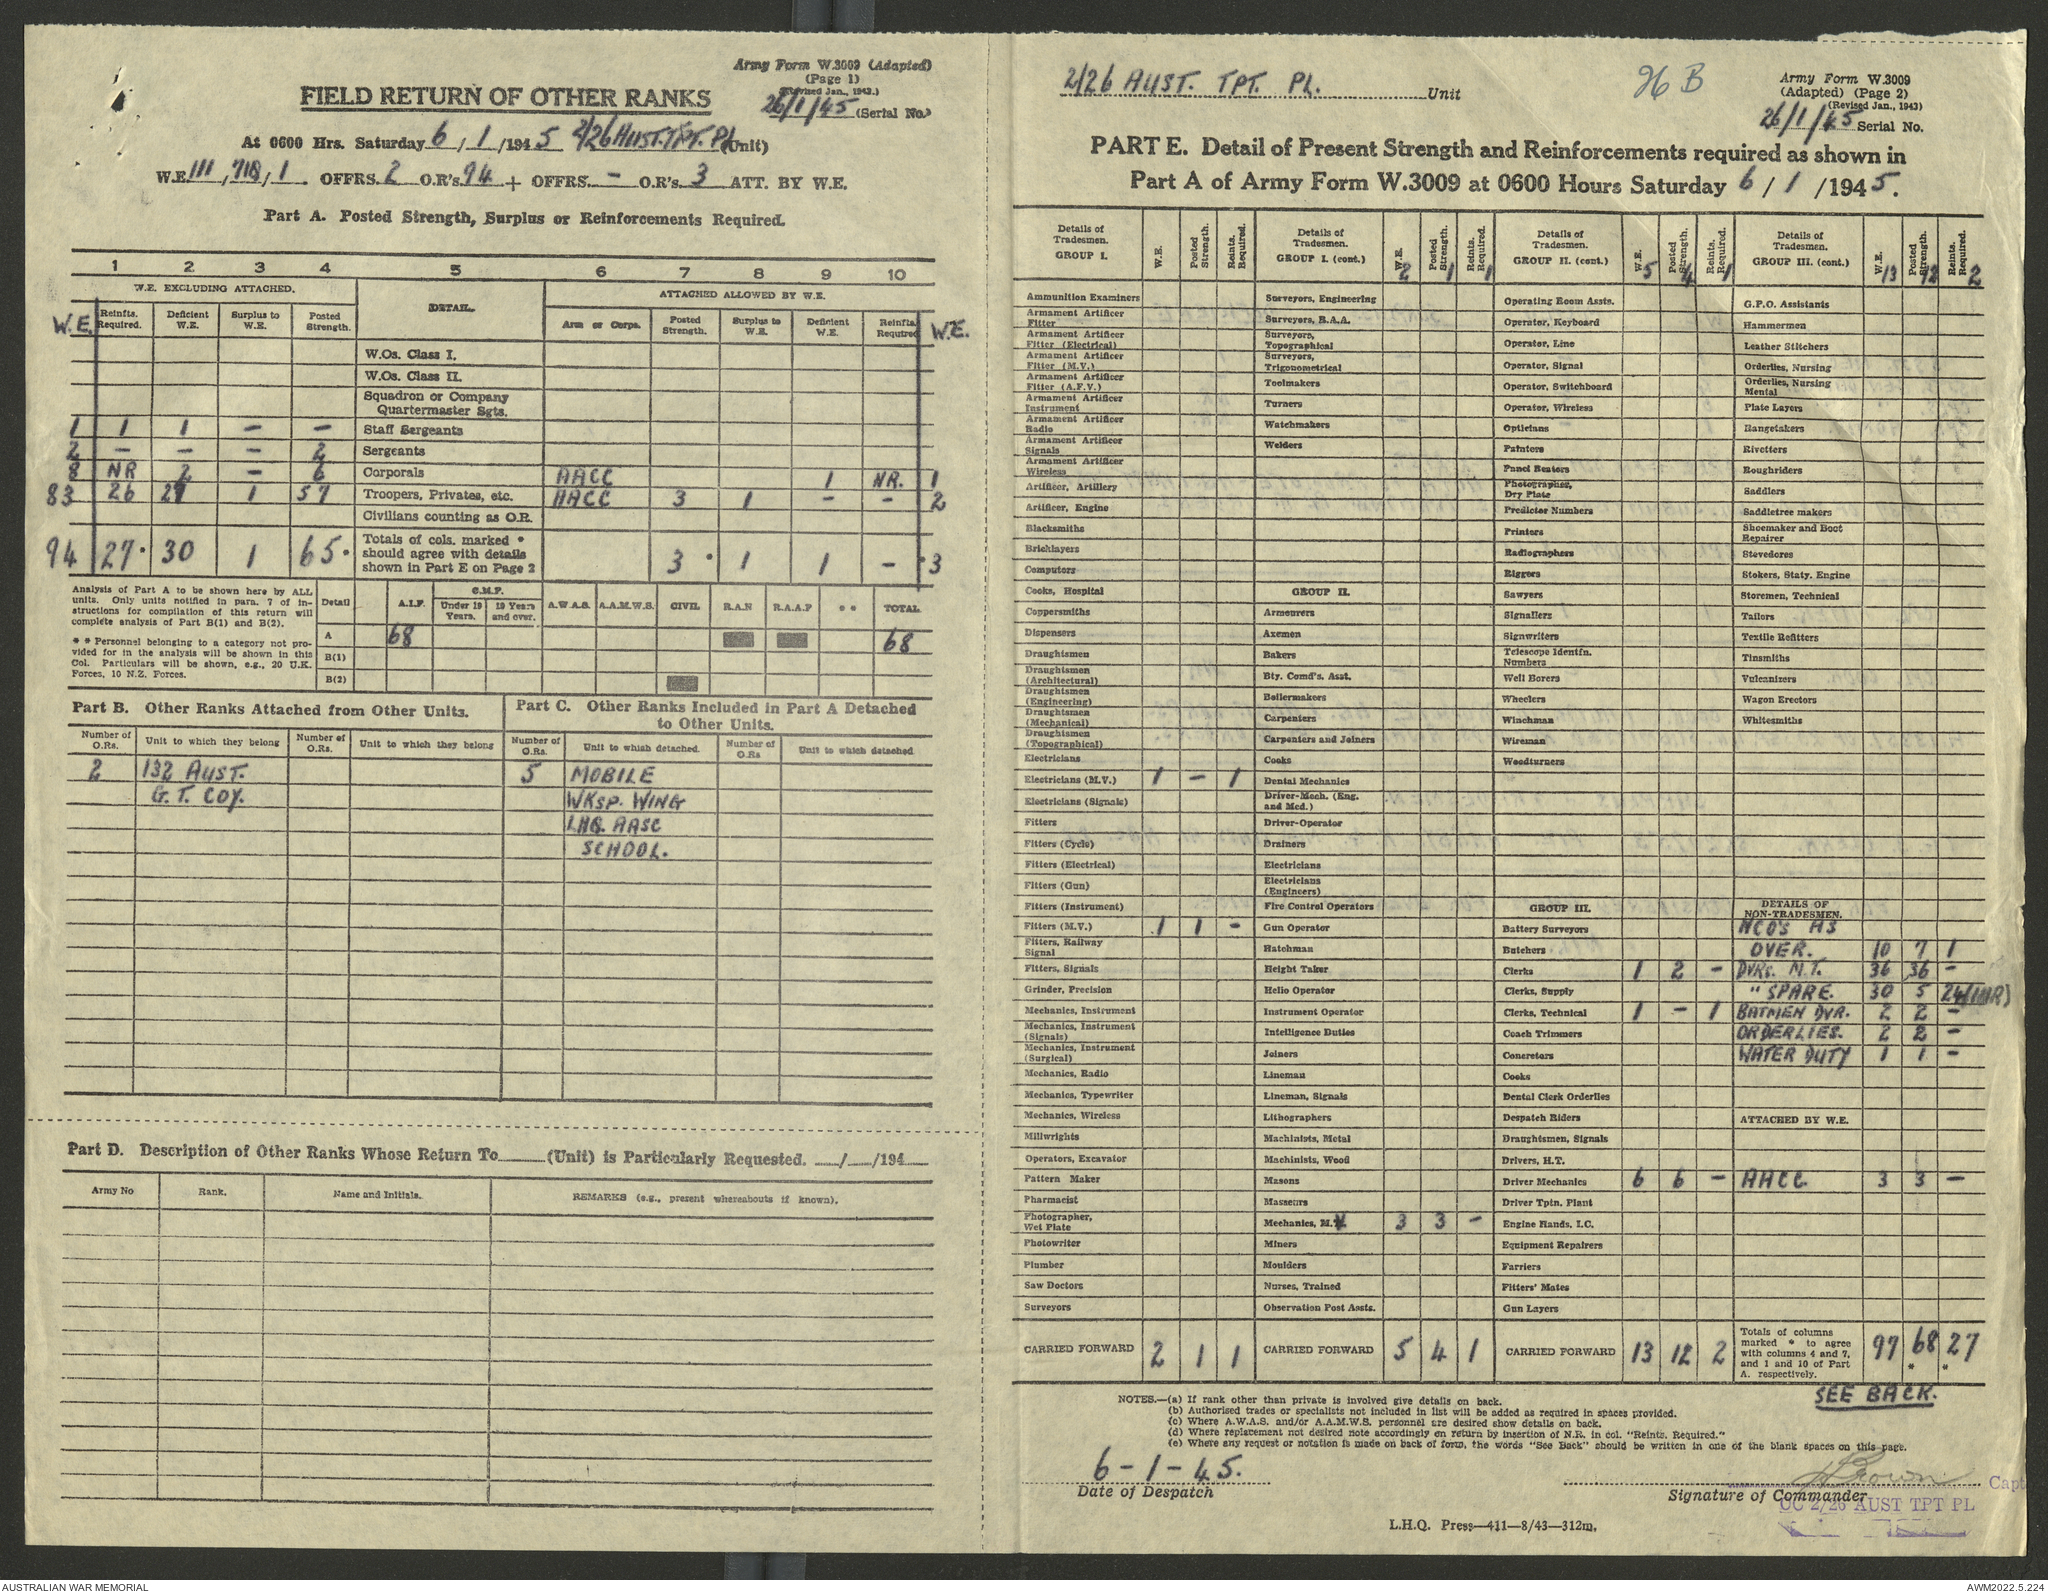 Army Form W.3009 (Adapted)
(Page 1)
(Revised Jan., 1943.)
FIELD RETURN OF OTHER RANKS
26/1/45 (Serial No.)
At 0600 Hrs. Saturday 6/1/1945 2/26 AUST. TPT. PL (Unit)
W.E. 111, 718/1. OFFRS. 2 O.R's. 94 + OFFRS. - O.R's. 3 ATT. BY W.E.
Part A. Posted Strength, Surplus or Reinforcements Required.
1 2 3 4 5 6 7 8 9 10
W.E. EXCLUDING ATTACHED. DETAIL. ATTACHED ALLOWED BY W.E.
W.E. Reinfts. Required. Deficient W.E. Surplus to W.E. Posted Strength. Arm or Corps. Posted Strength. Surplus to W.E. Deficient W.E. Reinfts. Required W.E.
W.Os. Class I.
W.Os. Class II.
Squadron or Company Quartermaster Sgts.
1 1 1 - - Staff Sergeants
2 - - - 2 Sergeants
8 NR 2 - 6 Corporals AACC 1 NR. 1
83 26 27 1 57 Troopers, Privates, etc. AACC 3 1 - - 2
Civilians counting as O.R.
94 27* 30 1 65* Totals of cols. marked * should agree with details shown in Part E on Page 2 3* 1 1 - *3
Analysis of Part A to be shown here by ALL
units. Only units notified in para. 7 of in-
structions for compilation of this return will
complete analysis of Part B(1) and B(2).
* * Personnel belonging to a category not pro-
vided for in the analysis will be shown in this
Col. Particulars will be shown, e.g., 20 U.K.
Forces, 10 N.Z. Forces.
Detail A.I.F. C.M.F. Under 19 Years. 19 Years and over. A.W.A.S. A.A.M.W.S. CIVIL R.A.N R.A.A.F * * TOTAL
A 68 68
B(1)
B(2)
Part B. Other Ranks Attached from Other Units.
Number of O.Rs. Unit to which they belong Number of O.Rs. Unit to which they belong
2 132 AUST.
G.T. COY.
Part C. Other Ranks Included in Part A Detached
to Other Units.
Number of O.Rs. Unit to which detached. Number of O.Rs Unit to which detached
5 MOBILE
WKSP. WING
LHQ. AASC
SCHOOL.
Part D. Description of Other Ranks Whose Return To (Unit) is Particularly Requested. / /194
Army No Rank. Name and Initials. REMARKS (e.g., present whereabouts if known).
2/26 AUST. TPT. PL. Unit
96 B
Army Form W.3009
(Adapted) (Page 2)
(Revised Jan., 1943)
26/1/45 Serial No.
PART E. Detail of Present Strength and Reinforcements required as shown in
Part A of Army Form W.3009 at 0600 Hours Saturday 6/1/1945.
Details of Tradesmen. GROUP I. W.E. Posted Strength. Reints. Required.
Ammunition Examiners
Armament Artificer Fitter
Armament Artificer Fitter (Electrical)
Armament Artificer Fitter (M.V.)
Armament Artificer Fitter (A.F.V.)
Armament Artificer Instrument
Armament Artificer Radio
Armament Artificer Signals
Armament Artificer Wireless
Artificer, Artillery
Artificer, Engine
Blacksmiths
Bricklayers
Computors
Cooks, Hospital
Coppersmiths
Dispensers
Draughtsmen
Draughtsmen (Architectural)
Draughtsmen (Engineering)
Draughtsmen (Mechanical)
Draughtsmen (Topographical)
Electricians
Electricians (M.V.) 1 - 1
Electricians (Signals)
Fitters
Fitters (Cycle)
Fitters (Electrical)
Fitters (Gun)
Fitters (Instrument)
Fitters (M.V.) 1 1 -
Fitters, Railway Signal
Fitters, Signals
Grinder, Precision
Mechanics, Instrument
Mechanics, Instrument (Signals)
Mechanics, Instrument (Surgical)
Mechanics, Radio
Mechanics, Typewriter
Mechanics, Wireless
Millwrights
Operators, Excavator
Pattern Maker
Pharmacist
Photographer, Wet Plate
Photowriter
Plumber
Saw Doctors
Surveyors
CARRIED FORWARD 2 1 1
Details of Tradesmen. GROUP I. (cont.) W.E. Posted Strength. Reints. Required. 2 1 1
Surveyors, Engineering
Surveyors, R.A.A.
Surveyors, Topographical
Surveyors, Trigonometrical
Toolmakers
Turners
Watchmakers
Welders
GROUP II.
Armourers
Axemen
Bakers
Bty. Comd's. Asst.
Boilermakers
Carpenters
Carpenters and Joiners
Cooks
Dental Mechanics
Driver-Mech. (Eng. and Med.)
Driver-Operator
Drainers
Electricians
Electricians (Engineers)
Fire Control Operators
Gun Operator
Hatchman
Height Taker
Helio Operator
Instrument Operator
Intelligence Duties
Joiners
Lineman
Lineman, Signals
Lithographers
Machinists, Metal
Machinists, Wood
Masons
Masseurs
Mechanics, M.V 3 3 -
Miners
Moulders
Nurses, Trained
Observation Post Assts.
CARRIED FORWARD 5 4 1
Details of Tradesmen. GROUP II. (cont.) W.E. Posted Strength. Reints. Required. 5 4 1
Operating Room Assts.
Operator, Keyboard
Operator, Line
Operator, Signal
Operator, Switchboard
Operator, Wireless
Opticians
Painters
Panel Beaters
Photographer, Dry Plate
Predictor Numbers
Printers
Radiographers
Riggers
Sawyers
Signallers
Signwriters
Telescope Identfn. Numbers
Well Borers
Wheelers
Winchman
Wireman
Woodturners
GROUP III.
Battery Surveyors
Butchers
Clerks 1 2 -
Clerks, Supply
Clerks, Technical 1 - 1
Coach Trimmers
Concretors
Cooks
Dental Clerk Orderlies
Despatch Riders
Draughtsmen, Signals
Drivers, H.T.
Driver Mechanics 6 6 -
Driver Tptn. Plant
Engine Hands, I.C.
Equipment Repairers
Farriers
Fitters' Mates
Gun Layers
CARRIED FORWARD 13 12 2
Details of Tradesmen. GROUP III. (cont.) W.E. Posted Strength. Reints. Required. 13 12 2
G.P.O. Assistants
Hammermen
Leather Stitchers
Orderlies, Nursing
Orderlies, Nursing Mental
Plate Layers
Rangetakers
Rivetters
Roughriders
Saddlers
Saddletree makers
Shoemaker and Boot Repairer
Stevedores
Stokers, Staty. Engine
Storemen, Technical
Tailors
Textile Refitters
Tinsmiths
Vulcanizers
Wagon Erectors
Whitesmiths
DETAILS OF NON-TRADESMEN.
NCO'S AS
OVER. 10 7 1
DVRS. M.T. 36 36 -
" SPARE. 30 5 24(1NR)
BATMEN DVR. 2 2 -
ORDERLIES. 2 2 -
WATER DUTY 1 1 -
ATTACHED BY W.E.
AACC 3 3 -
Totals of columns marked * to agree with columns 4 and 7, and 1 and 10 of Part A. respectively. 97 68* 27*
SEE BACK.
NOTES.—(a) If rank other than private is involved give details on back.
(b) Authorised trades or specialists not included in list will be added as required in spaces provided.
(c) Where A.W.A.S. and/or A.A.M.W.S. personnel are desired show details on back.
(d) Where replacement not desired note accordingly on return by insertion of N.R. in col. "Reints. Required."
(e) Where any request or notation is made on back of form, the words "See Back" should be written in one of the blank spaces on this page.
6-1-45.
Date of Despatch
Brown Capt
Signature of Commander
OC 2/26 AUST TPT PL
L.H.Q. Press—411—8/43—312m.
AUSTRALIAN WAR MEMORIAL
AWM2022.5.224